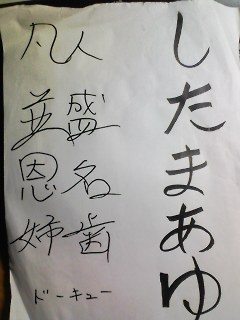 したまあゆ
凡人
並盛
恩名
姉歯
ドーキュー